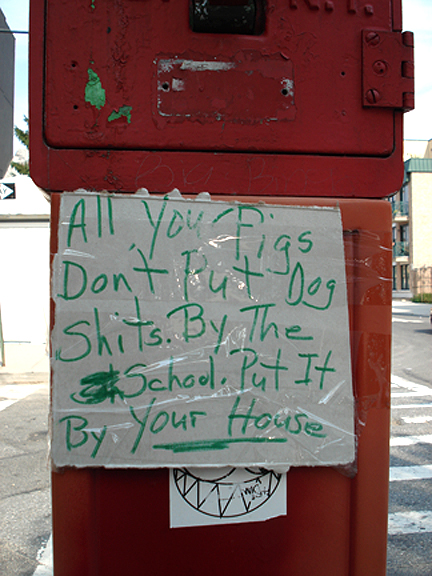 All You Pigs
Don't Put Dog
Shits. By The
School. Put It
By Your House